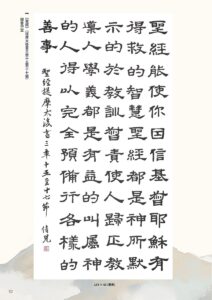 聖經能使你因信基督耶穌有
得救的智慧聖經都是神所默
示的於教訓督責使人歸正教
導人學義都是有益的叫屬神
的人得以完全預備行各樣的
善事
聖經提摩太後書三章十五至十七節